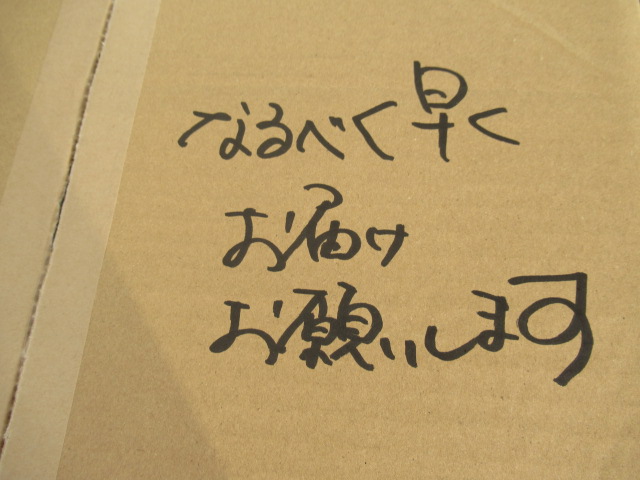 なるべく早く
お届け
お願いします